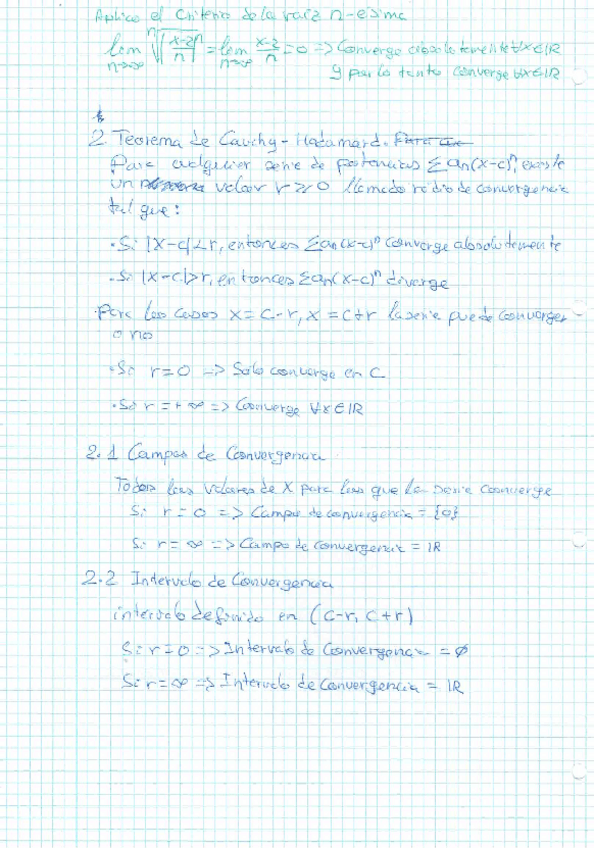 Aplico el Criterio de la raiz n-esima
lim n→∞ ⁿ√|(x-2)ⁿ/n| = lim n→∞ x-2/n = 0 => Converge absolutamente ∀x∈ℝ
y por lo tanto converge ∀x∈ℝ
2 Teorema de Cauchy-Hadamard.
Para cualquier serie de potencias Σan(x-c)ⁿ, existe
un valor r≥0 llamado radio de convergencia
tal que:
·Si |x-c|<r, entonces Σan(x-c)ⁿ converge absolutamente
·Si |x-c|>r, entonces Σan(x-c)ⁿ diverge
·Para los casos x=c-r, x=c+r la serie puede converger
o no
·Si r=0 => Solo converge en C
·Si r=+∞ => Converge ∀x∈ℝ
2.1 Campos de Convergencia
Todos los valores de x para los que la serie converge
Si r=0 => Campo de convergencia = {0}
Si r=∞ => Campo de convergencia = ℝ
2.2 Intervalo de Convergencia
intervalo definido en (c-r, c+r)
Si r=0 => Intervalo de Convergencia = ∅
Si r=∞ => Intervalo de Convergencia = ℝ